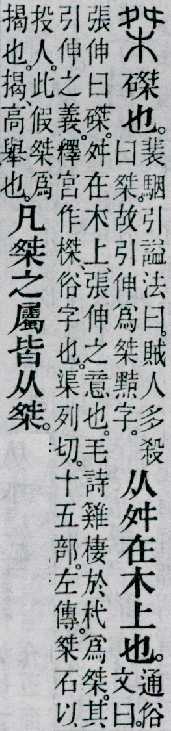 桀磔也。裴駰引謚法曰。賊人多殺曰桀。故引伸爲桀黠字。从舛在木上也。通俗文曰。
張伸曰磔。舛在木上、張伸之意也。毛詩雞棲於杙爲桀。其
引伸之義。釋宮作榤、俗字也。渠列切。十五部。左傳。桀石以
投人。此假桀爲揭也。揭、高舉也。凡桀之屬皆从桀。